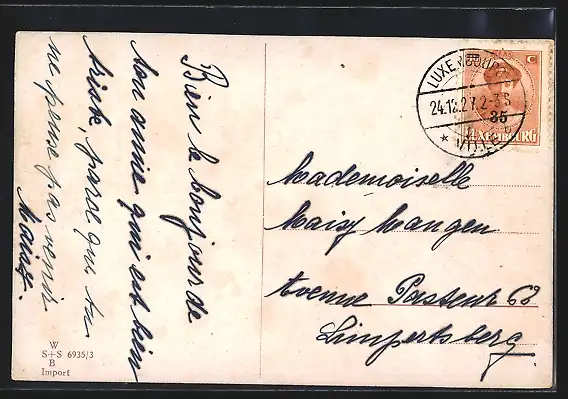 Bien le bonjour de
ton amie qui est bien
triste, parce que tu
ne pense pas venir
W
S+S 6935/3
B
Import
C
LUXEMBOURG
24.12.27. 2-3 S
* VILLE
35
LUXEMBOURG
Mademoiselle
Maisy Mangen
Avenue Pasteur 62
Limpertsberg